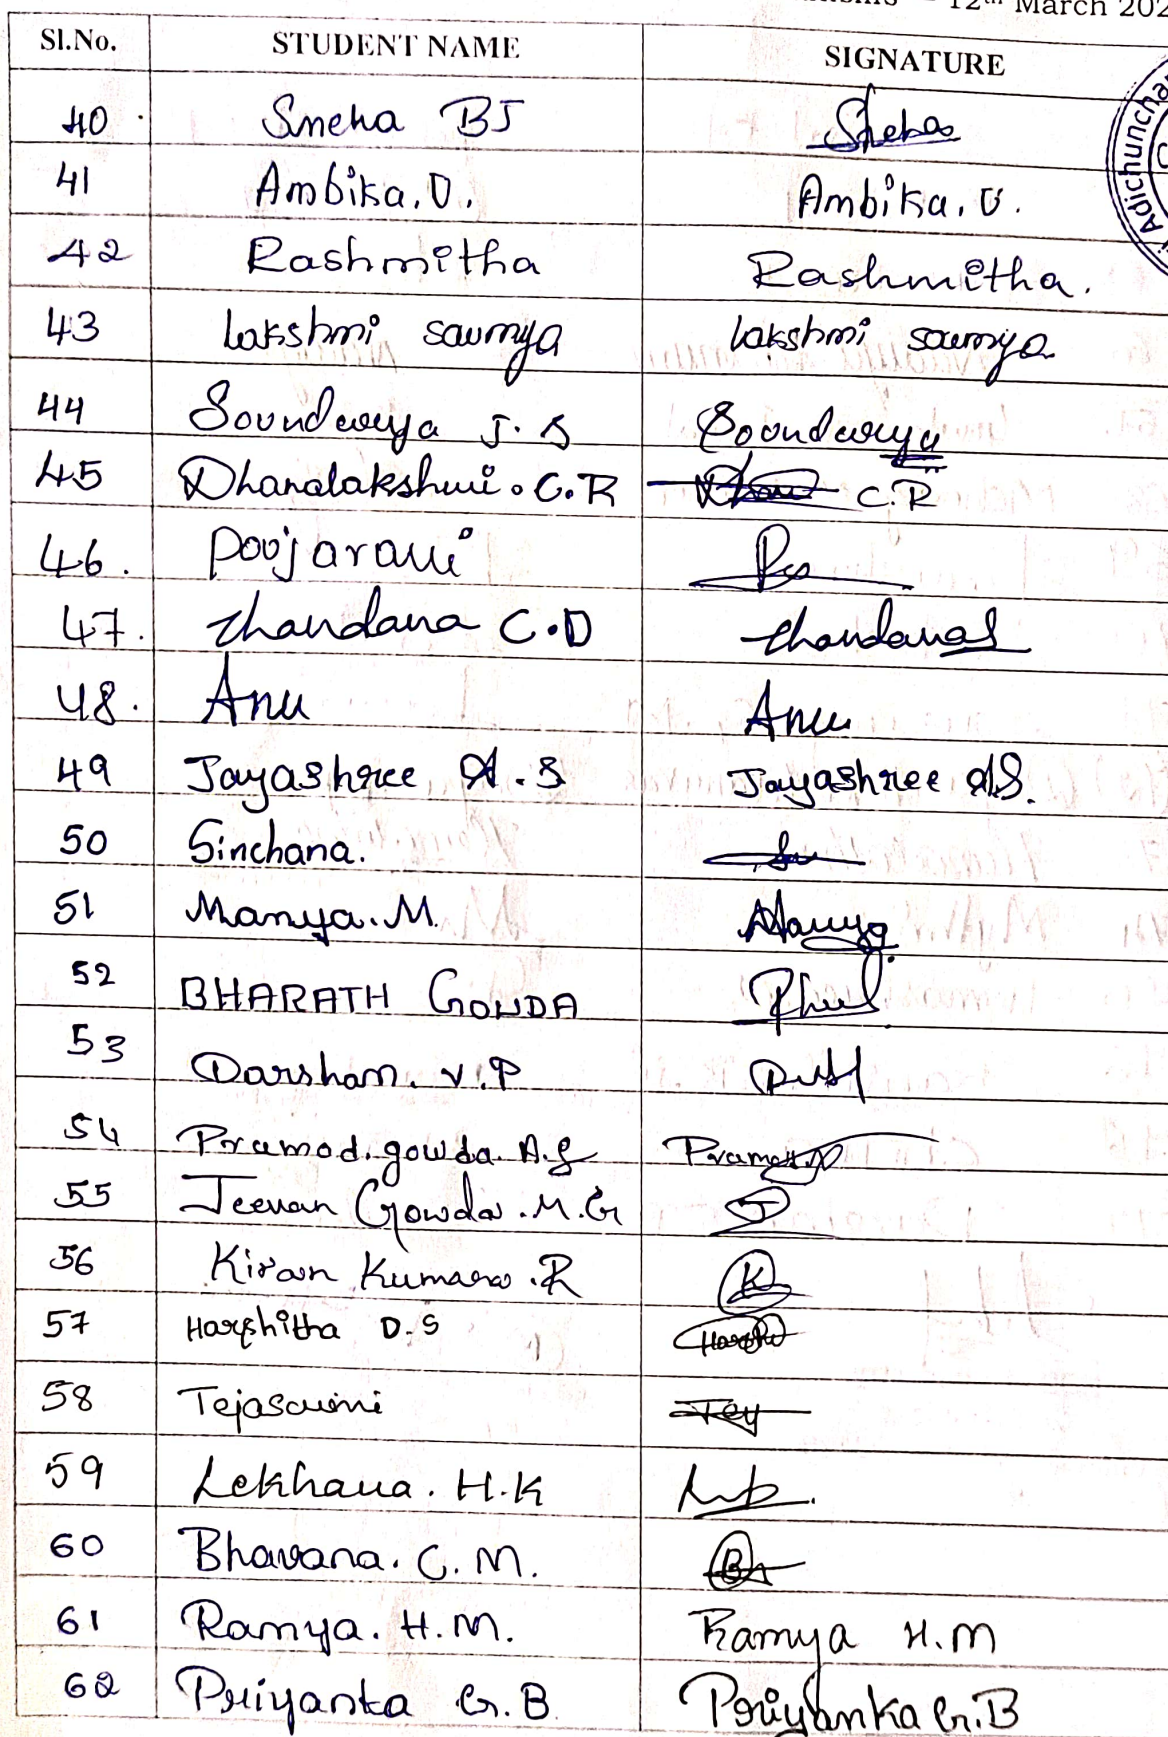 12th March 202
Sl.No. STUDENT NAME SIGNATURE
Adichuncha
40 Sneha BJ Sneha
41 Ambika.U. Ambika.U.
42 Rashmitha Rashmitha.
43 Lakshmi sowmya Lakshmi sowmya
44 Soundarya J.S Soundarya
45 Dhanalakshmi.C.R C.R
46. Poojarani
47. Chandana C.D Chandana
48. Anu Anu
49 Jayashree A.S Jayashree A.S.
50 Sinchana.
51 Manya.M. Manya
52 BHARATH GOWDA
53 Darshan.V.P
54 Pramod.gowda.A.S
55 Jeevan Gowda.M.G J
56 Kiran Kumara.R K
57 Harshitha D.S
58 Tejaswini Tej
59 Lekhana.H.K
60 Bhavana.C.M. B
61 Ramya.H.M. Ramya H.M
62 Priyanka G.B Priyanka G.B